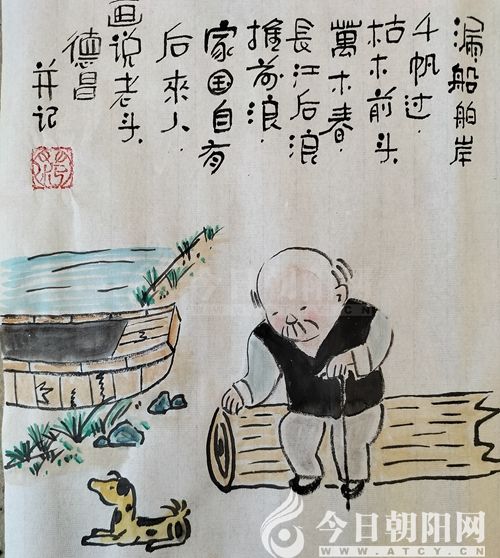 漏船舶岸
千帆过.
枯木前头
萬木春.
長江后浪
推前浪.
家国自有
后來人.
画说老头.
德昌
并记
今日朝阳网
WWW.ATCY.CN
今日朝阳网
WWW.ATCY.CN